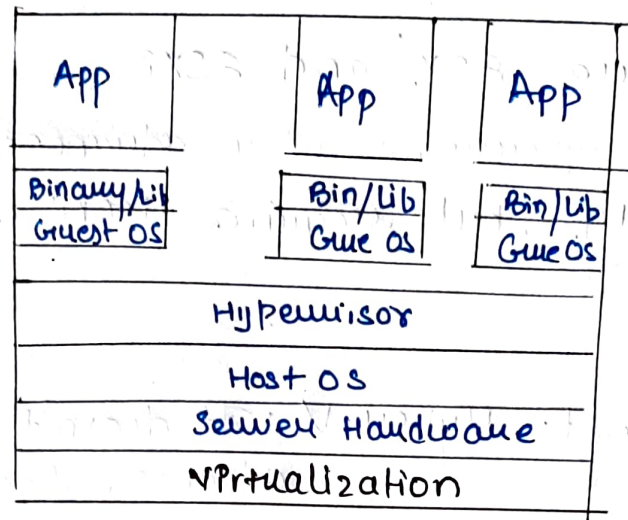 App App App
Binary/Lib Bin/Lib Bin/Lib
Guest OS Gue OS Gue OS
Hypervisor
Host OS
Server Hardware
Virtualization